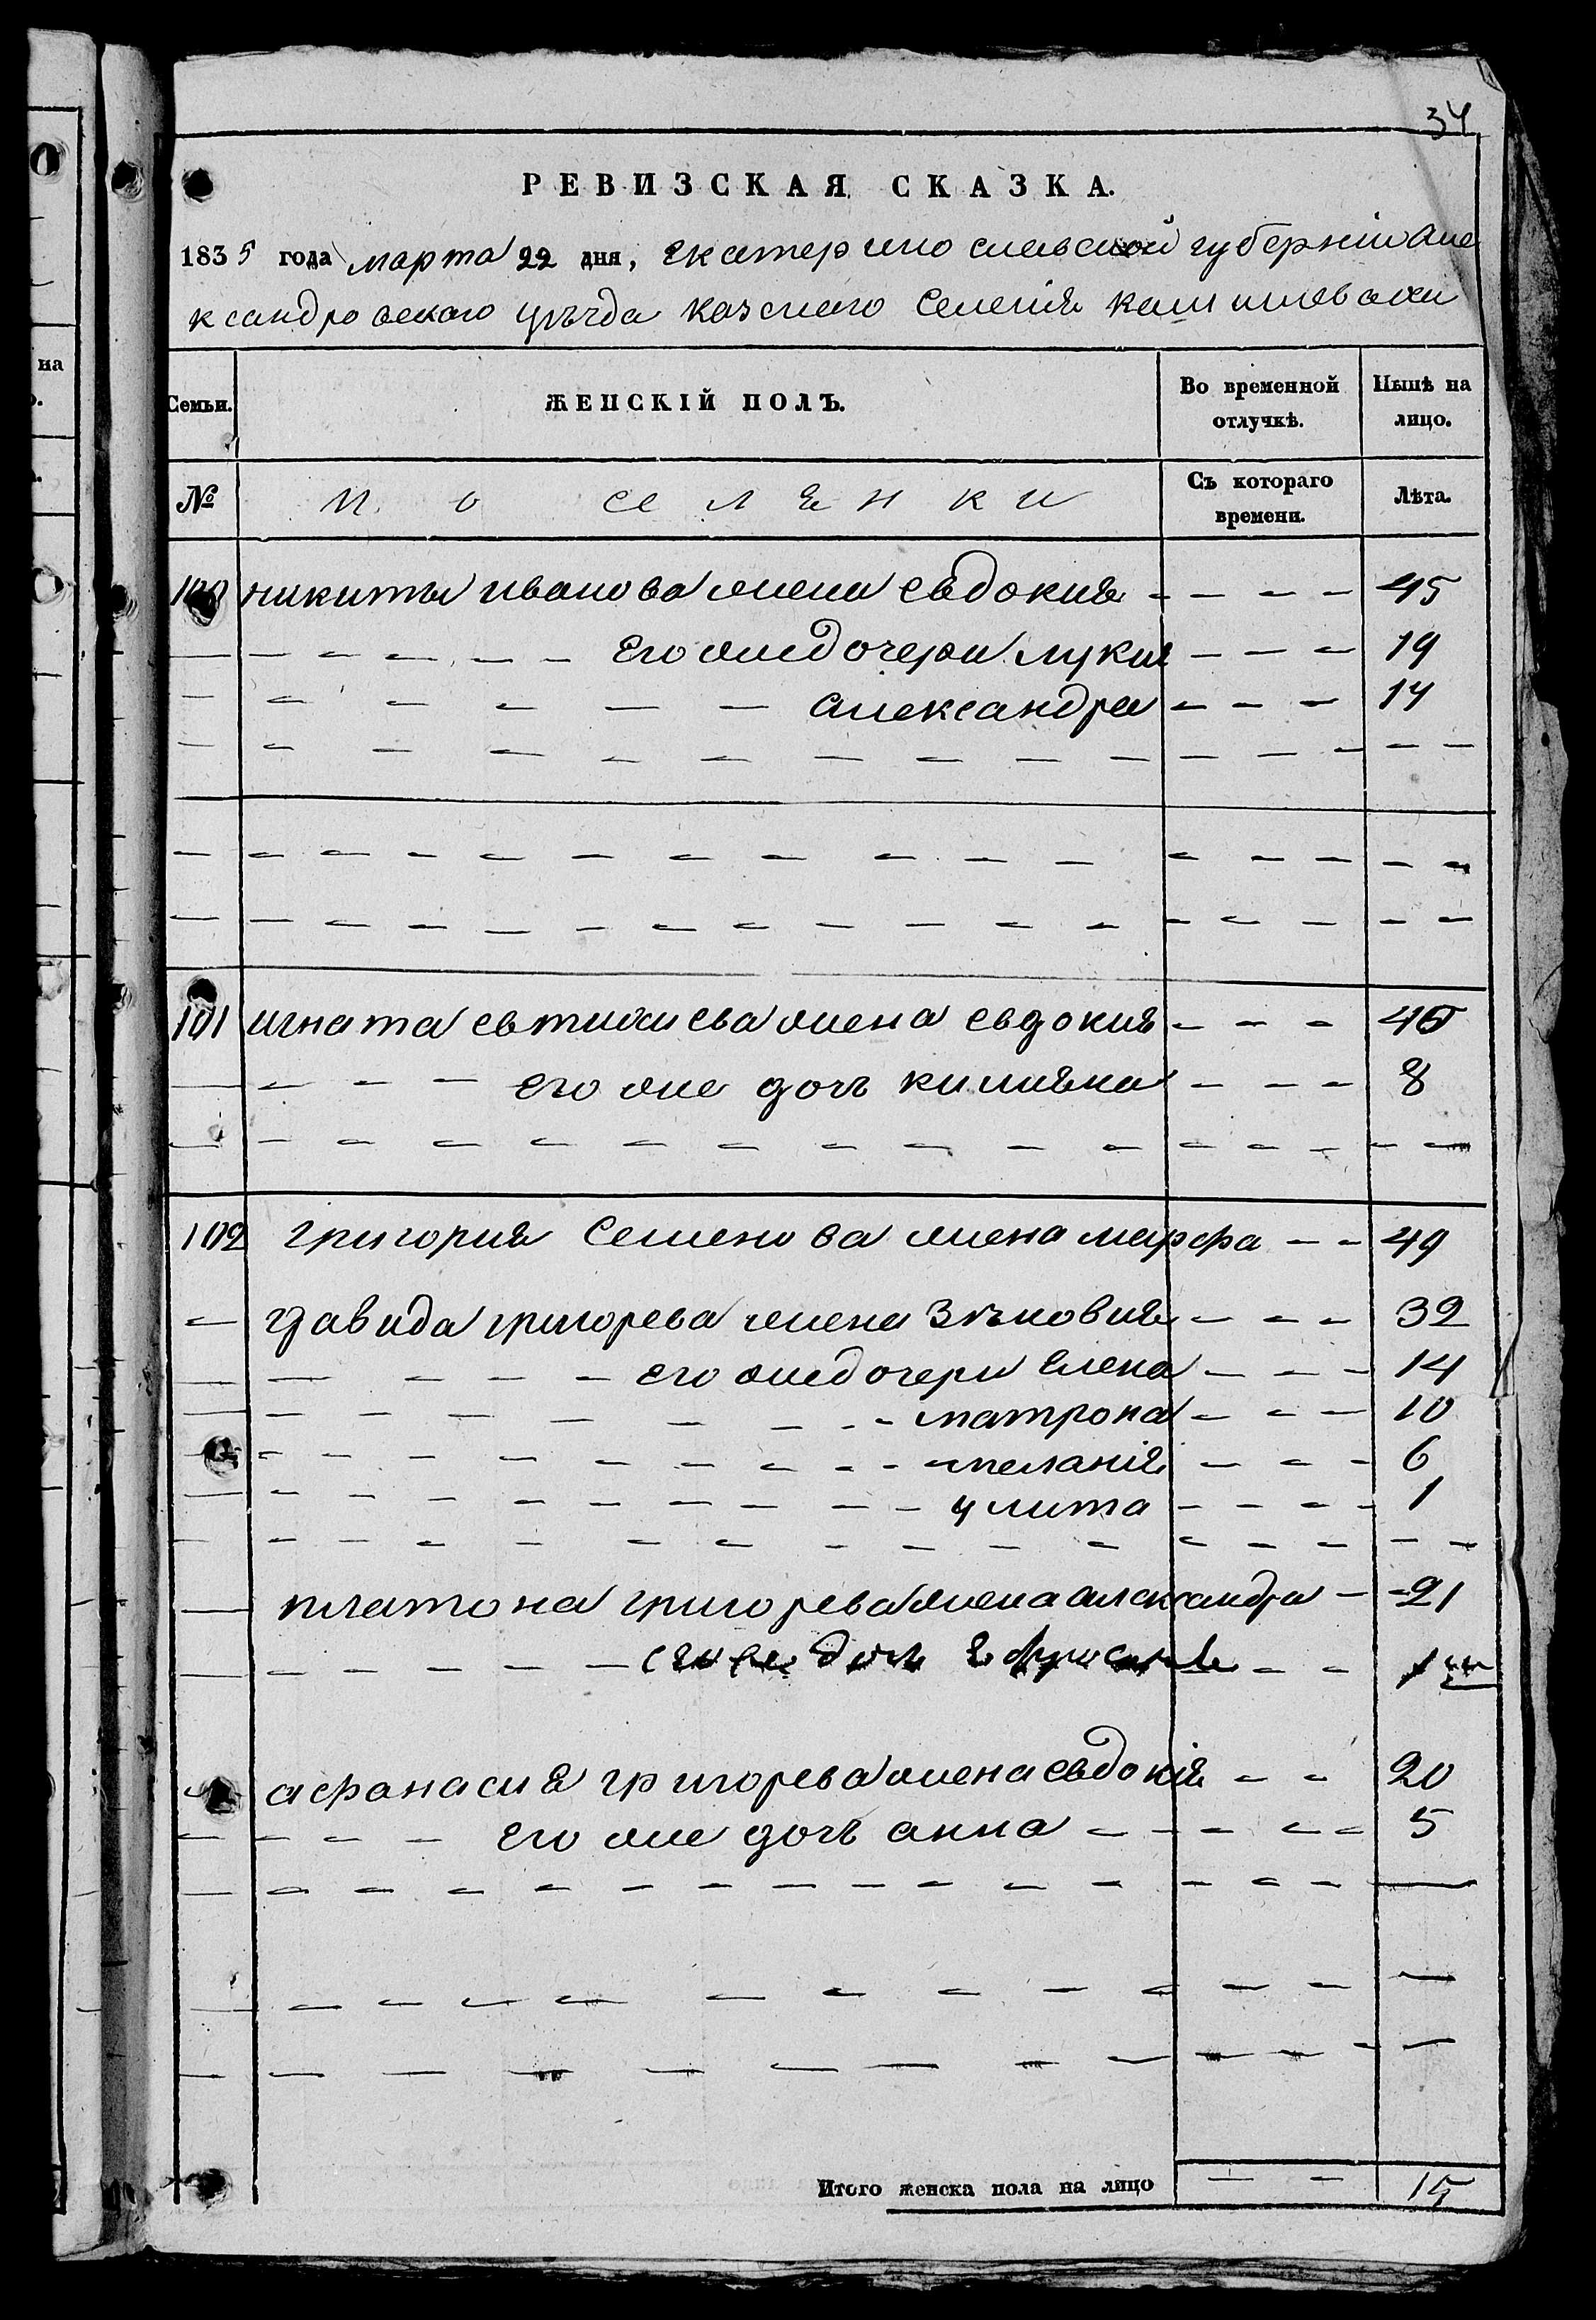 34
РЕВИЗСКАЯ СКАЗКА.
1835 года марта 22 дня, Екатеринославской губернiи Але
ксандровского уѣзда Казенного Селенiя камышевахи
на
Семьи. ЖЕНСКIЙ ПОЛЪ. Во временной отлучкѣ. Нынѣ на лицо.
№ поселянки Съ котораго времени. Лѣта.
100 никиты иванова жена евдокия - - - - 45
Его же дочери лукия - - - 19
Александра - - - 14
101 игната евтихиева жена евдокия - - - 40
его же дочь килияна - - - 8
102 григория Семенова жена марфа - - 49
Давида григорева жена Зѣновия - - - 32
его же дочери Елена - - - 14
матрона - - - 10
меланiя - - - 6
улита - - - - 1
платона григорева жена александра - 21
дочь - - 1
афанасия григорева жена евдокiя - - 20
Его же дочь анна - - - - - 5
Итого женска пола на лицо - - 15